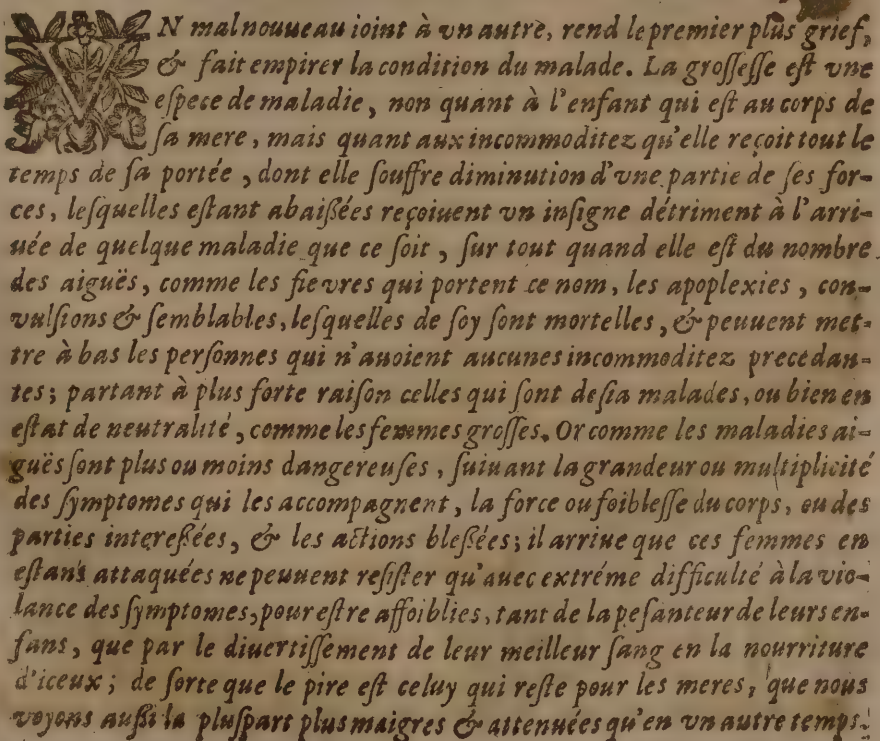 VN mal nouueau ioint à vn autre, rend le premier plus grief,
& fait empirer la condition du malade. La grossesse est vne
espece de maladie, non quant à l'enfant qui est au corps de
sa mere, mais quant aux incommoditez qu'elle reçoit tout le
temps de sa portée, dont elle souffre diminution d'vne partie de ses for-
ces, lesquelles estant abaißées reçoiuent vn insigne détriment à l'arri-
uée de quelque maladie que ce soit, sur tout quand elle est du nombre
des aiguës, comme les fievres qui portent ce nom, les apoplexies, con-
vulsions & semblables, lesquelles de soy sont mortelles, & peuuent met-
tre à bas les personnes qui n'auoient aucunes incommoditez precedan-
tes; partant à plus forte raison celles qui sont desia malades, ou bien en
estat de neutralité, comme les femmes grosses. Or comme les maladies ai-
guës sont plus ou moins dangereuses, suiuant la grandeur ou multiplicité
des symptomes qui les accompagnent, la force ou foiblesse du corps, ou des
parties intereßées, & les actions bleßées; il arriue que ces femmes en
estans attaquées ne peuuent resister qu'auec extréme difficulté à la vio-
lance des symptomes, pour estre affoiblies, tant de la pesanteur de leurs en-
fans, que par le diuertissement de leur meilleur sang en la nourriture
d'iceux; de sorte que le pire est celuy qui reste pour les meres, que nous
voyons außi la pluspart plus maigres & attenuées qu'en vn autre temps.